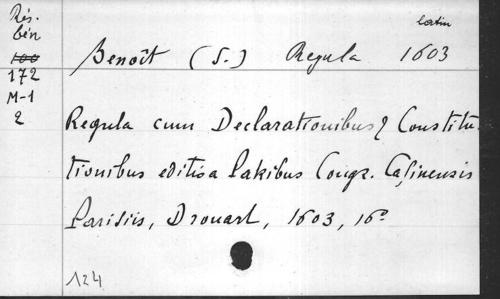 Rés.
bén
100
172
M-1
2
latin
Benoît (S.) Regula 1603
Regula cum Declarationibus & Constitu-
tionibus editis a Patribus Congr. Caſinensis
Parisiis, Drouart, 1603, 16°
124